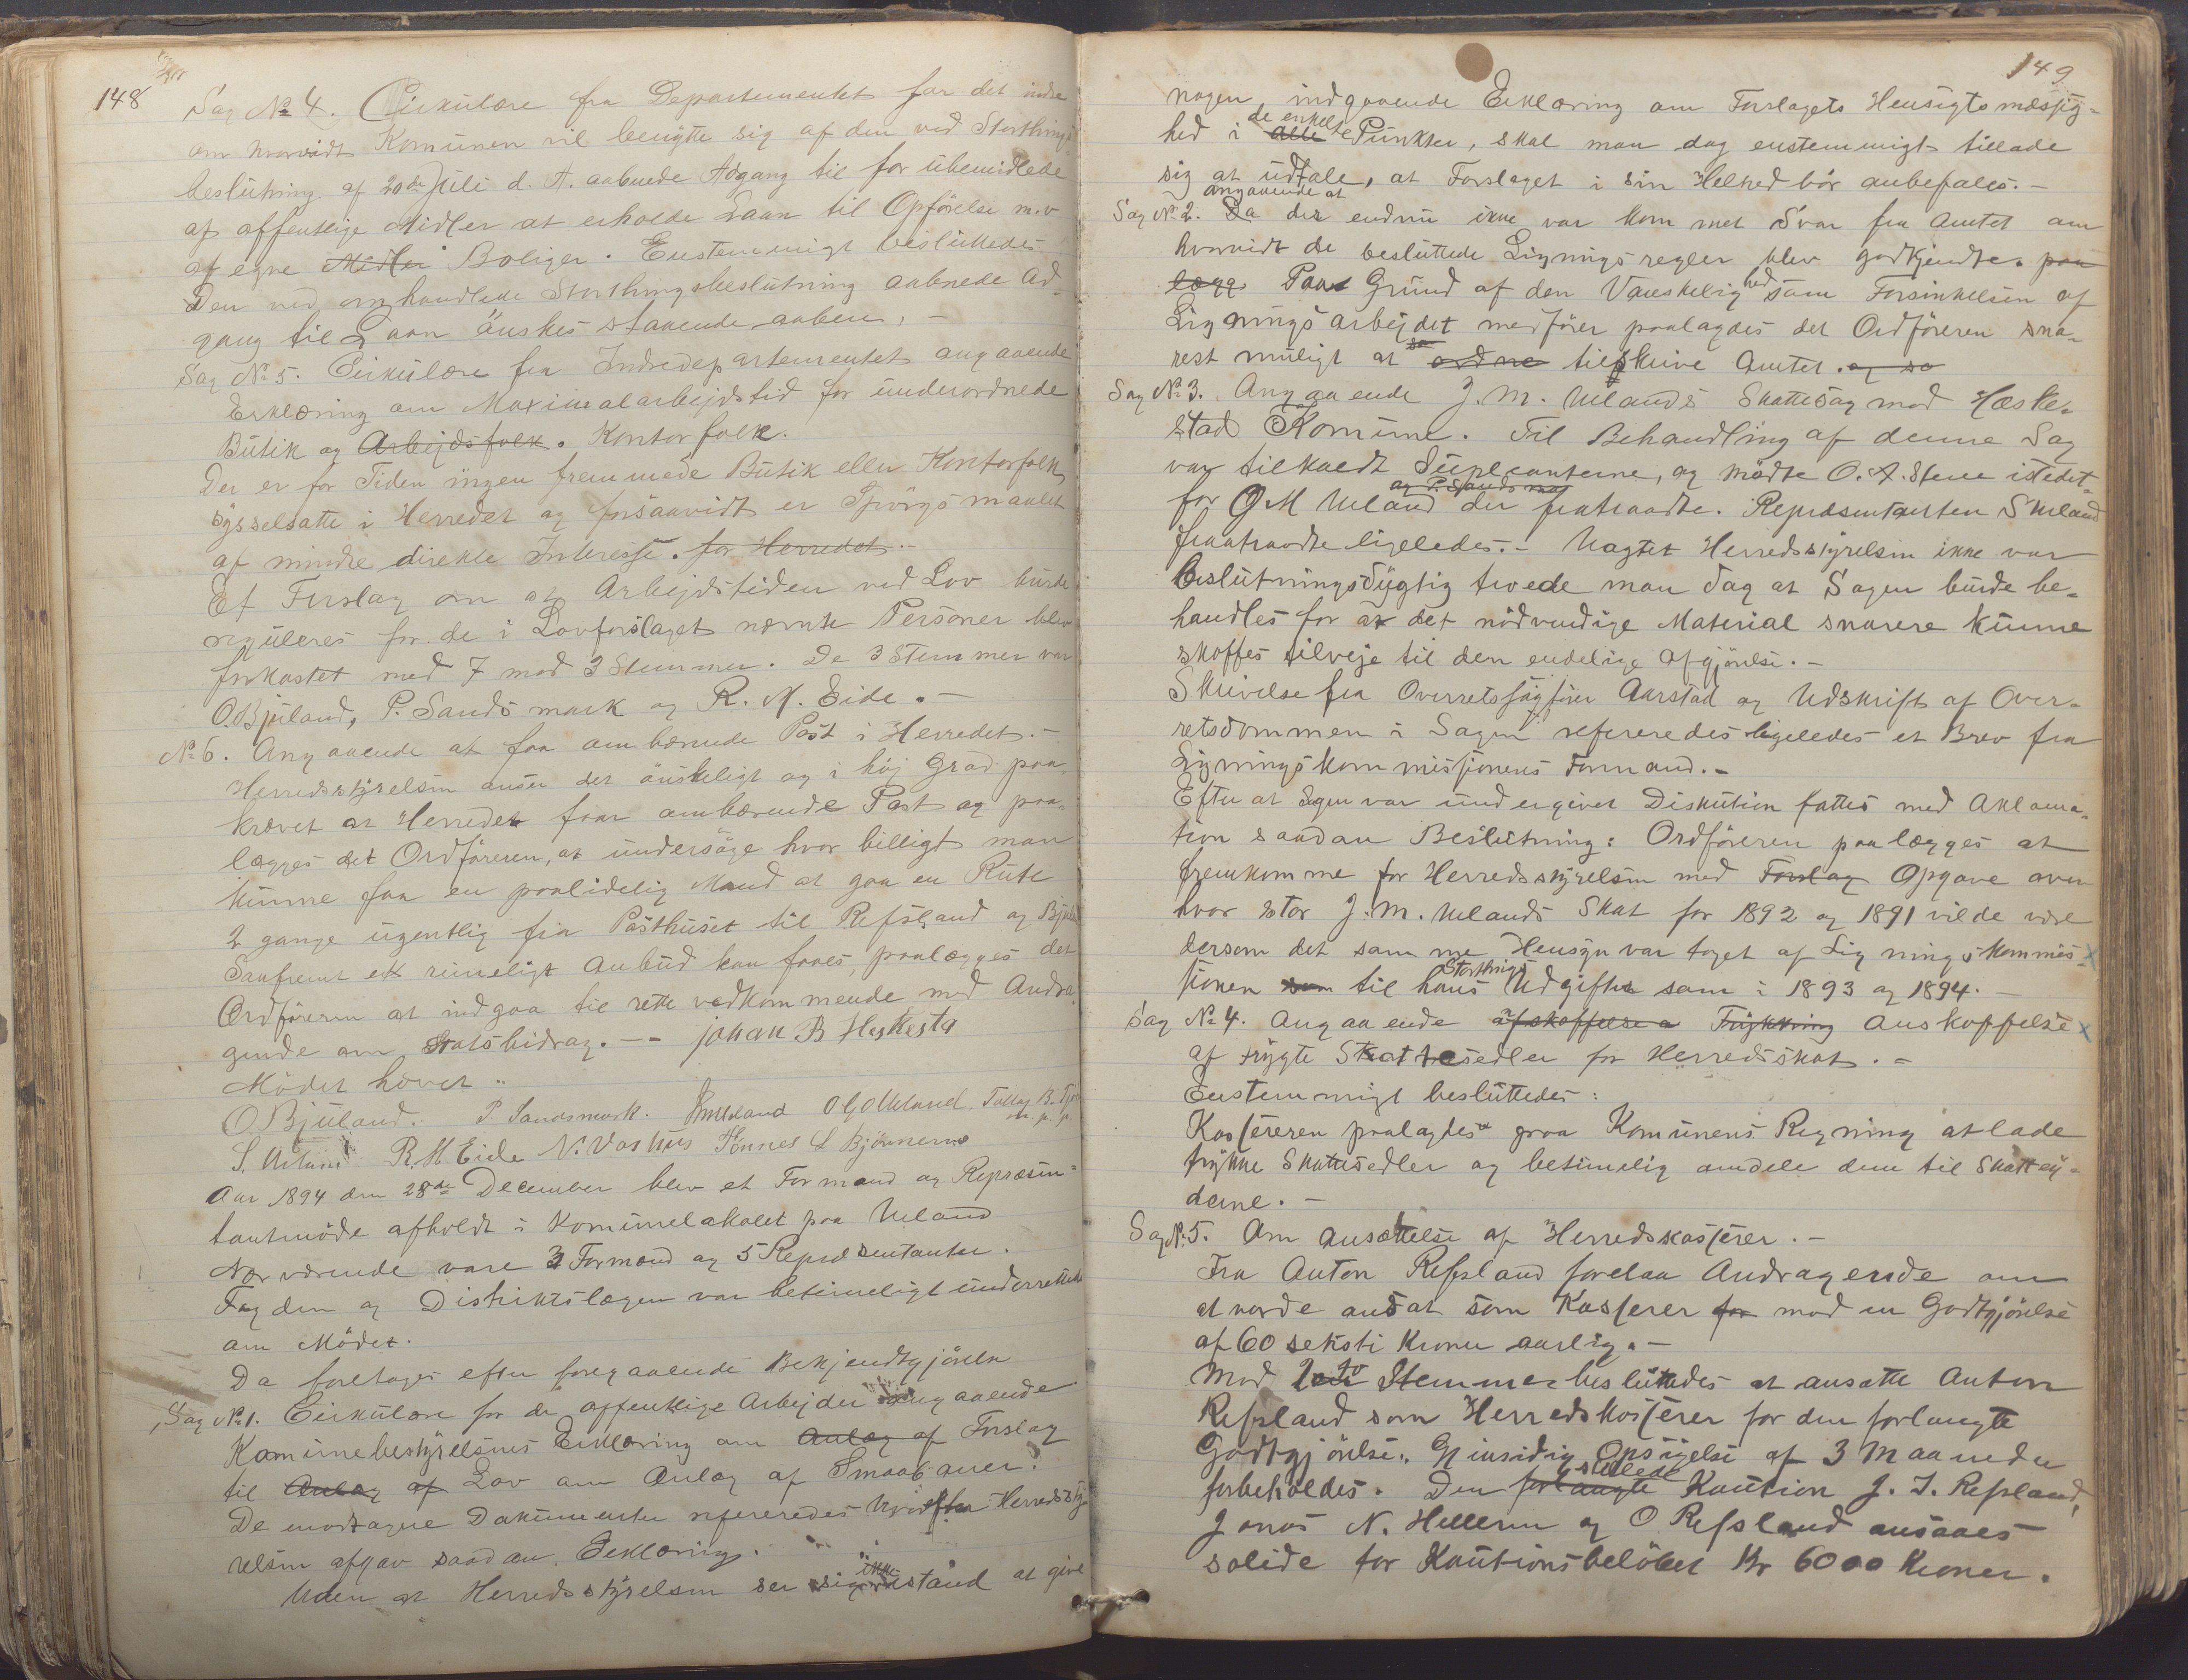 148
Sag № 4. Cirkulære fra Departementet for det indre
om hvorvidt Komunen vil benytte sig af den ved Storthings-
beslutning af 20de Juli d. A. aabnede Adgang til for ubemidlede
af offentlige Midler at erholde Laan til Opförelse m.v
af egne Midler Boliger. Enstemmigt besluttedes
Den ved omhandlede Storthingsbeslutning aabnede Ad-
gang til Laan önskes staaende aaben. -
Sag № 5. Cirkulære fra Indredepartementet angaaende
Erklæring om Maximalarbejdstid for underordnede
Butik og Arbejdsfolk. Kontorfolk.
Der er for Tiden ingen fremmede Butik eller Kontorfolk
sysselsatte i Herredet og forsaavidt er Spörgsmaalet
af mindre direkte Interesse. for Herredet.-
Et Forslag om at Arbejdstiden ved Lov burde
reguleres for de i Lovforslaget nævnte Personer blev
forkastet med 7 mod 3 Stemmer. De 3 Stemmer var
O. Bjuland, P. Sandsmark og R. M. Eide. -
№ 6. Angaaende at faa ombærende Post i Herredet. -
Herredsstyrelsen anser det önskeligt og i höj Grad paa-
krævet at Herredet faar ombærende Post og paa-
lægges det Ordföreren, at undersöge hvor billigt man
kunne faa en paalidelig Mand at gaa en Rute
2 gange ugentlig fra Posthuset til Refsland og Bjuland
Snafremt et rimeligt Anbud kan faaes, paalægges det
Ordföreren at indgaa til rette vedkommende med Andra-
gende om Statsbidrag. -- Johan B Heskesta
Mödet hævet ..
O Bjuland. P. Sandsmark. O G Ueland. Tollag B.
m. p. p.
S. R. M Eide N. Vashus Tönnes L Bjönnernes
Aar 1894 den 28de December blev et Formand og Repræsen-
tantmöde afholdt i Komunelokalet paa Ueland
Nærværende vare 3 Formænd og 5 Repræsentanter.
Fogden og Distriktslægen var betimeligt underrettede
om Mödet.
Da foretoges efter foregaaende Bekjendtgjörelse
Sag № 1. Cirkulære for de offentlige Arbejder angaaende
Kommunebestyrelsens Erklæring om Anlæg af Forslag
til Anlæg af Lov om Anlæg af Smaabaner.
De modtagne Dokumenter refereredes hvorefter Herredssty-
relsen afgav saadan Erklæring.
Uden at Herredsstyrelsen ser sig ikke istand at give
149
nogen indgaaende Erklæring om Forslagets Hensigtsmæssig-
de enkelte
hed i alle Punkter, skal man dog enstemmigt tillade
sig at udtale, at Forslaget i sin Helhed bör anbefales. -
angaaende at
Sag № 2. Da der endnu ikke var kom met Svar fra Amtet om
hvorvidt de besluttede Ligningsregler blev godkjendte. paa
lægg Paa Grund af den Vanskelighed som Forsinkelsen af
Ligningsarbejdet medförer paalagdes det Ordföreren sna-
rest muligt at ordne tilskrive Amtet. og sa
Sag № 3. Angaaende J. M. Uelands Skattesag mod Heske-
stad Komune. Til Behandling af denne Sag
var tilkaldt Supleanterne, og mödte O. A. Stene istedet-
og P. Sandsmark
for O M Ueland der fratraadte. Repræsentanten S Ueland
fraatraadte ligeledes. - Uagtet Herredsstyrelsen ikke var
beslutningsdygtig troede man dog at Sagen burde be-
handles for at det nödvendige Material snarere kunne
skaffes tilveje til den endelige Afgjörelse. -
Skrivelse fra Overretssagförer Aarstad og Udskrift af Over-
retsdommen i Sagen refereredes ligeledes et Brev fra
Ligningskommissionens Formand. -
Efter at Sagen var undergivet Diskution fattes med Aklama-
tion saadan Beslutning: Ordföreren paalægges at
fremkomme for Herredsstyrelsen med Forslag Opgave over
hvor stor J. M. Uelands Skat for 1892 og 1891 vilde være
dersom det samme Hensyn var taget af Ligningskommis-
Storthings
sionen som til hans Udgifter som i 1893 og 1894. -
Sag № 4. Angaaende afskaffelse a Trykkning Anskaffelse
af trygte Skattesedler for Herredsskat. -
Enstemmigt besluttedes:
Kassereren paalagdes paa Komunens Regning at lade
trykke Skattesedler og betimelig omdele dem til Skattey-
derne. -
Sag № 5. Om Ansættelse af Herredskasserer. -
Fra Anton Refsland forelaa Andragende om
at vorde ansat som Kasserer for mod en Godtgjörelse
af 60 seksti Kroner aarlig. -
Mod to Stemmer besluttedes at ansætte Anton
Refsland som Herredskasserer for den forlangte
Godtgjörelse. Gjensidig Opsigelse af 3 Maaneder
stillede
forbeholdes. Den forlangte Kaution J. T. Refsland,
Jonas N. Helleren og O Refsland ansaaes
solide for Kautionsbelöbet Kr 6000 Kroner.